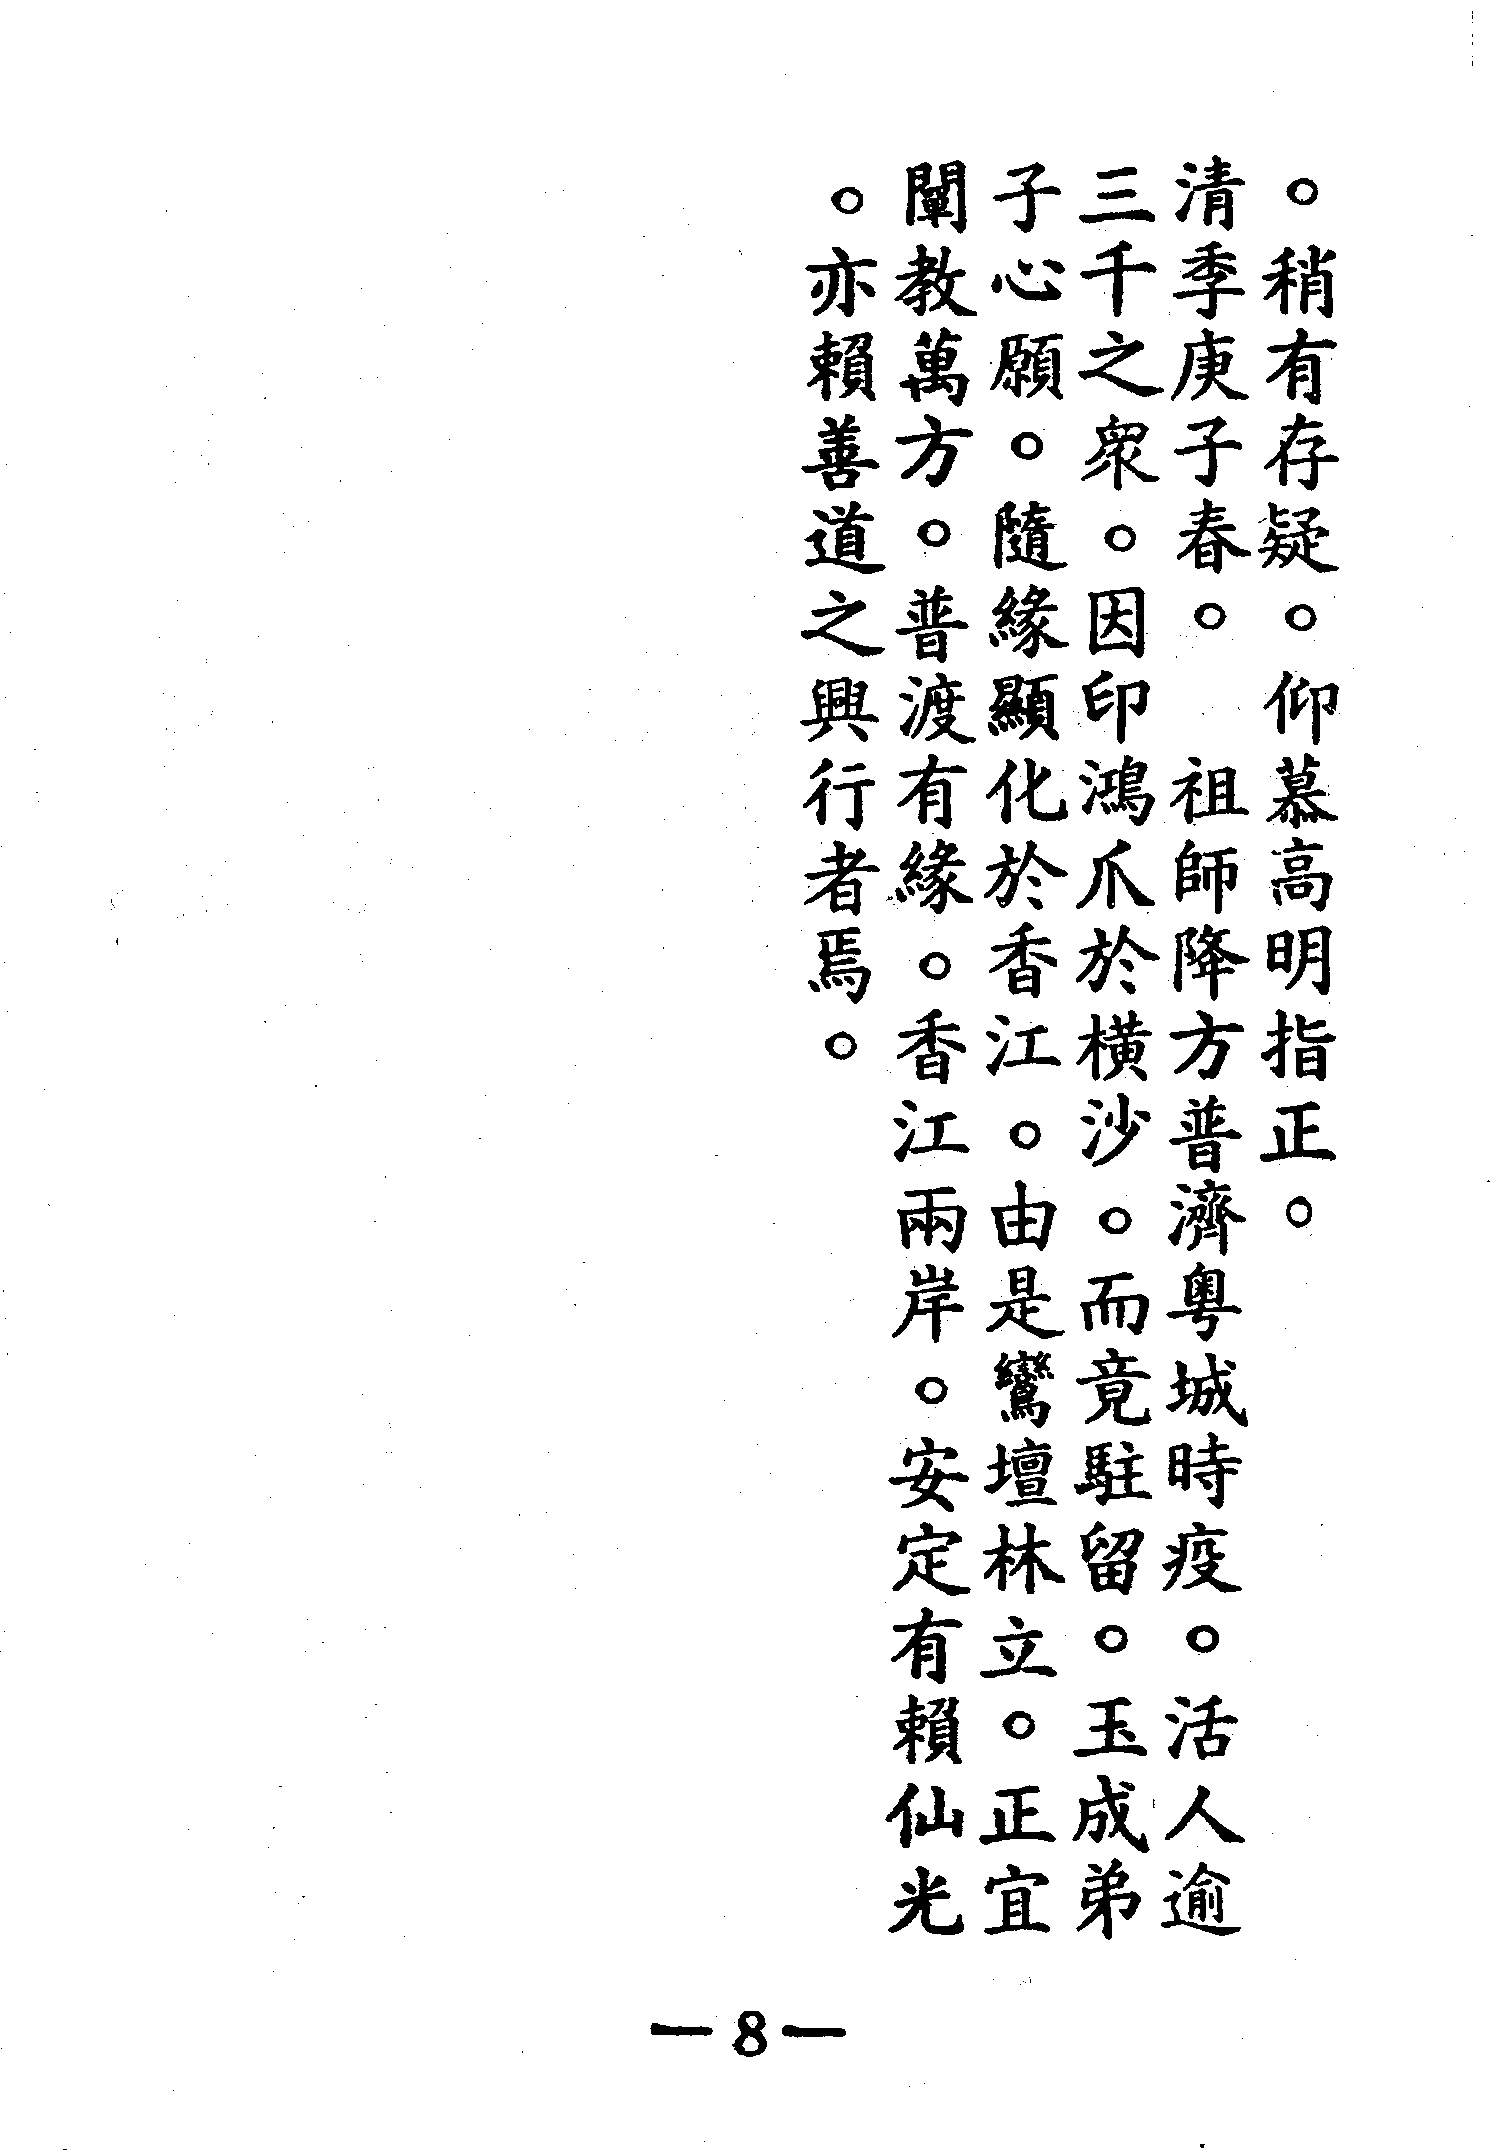 。稍有存疑。仰慕高明指正。
清季庚子春。　祖師降方普濟粵城時疫。活人逾
三千之衆。因印鴻爪於橫沙。而竟駐留。玉成弟
子心願。隨緣顯化於香江。由是鸞壇林立。正宜
闡教萬方。普渡有緣。香江兩岸。安定有賴仙光
。亦賴善道之興行者焉。
—8—